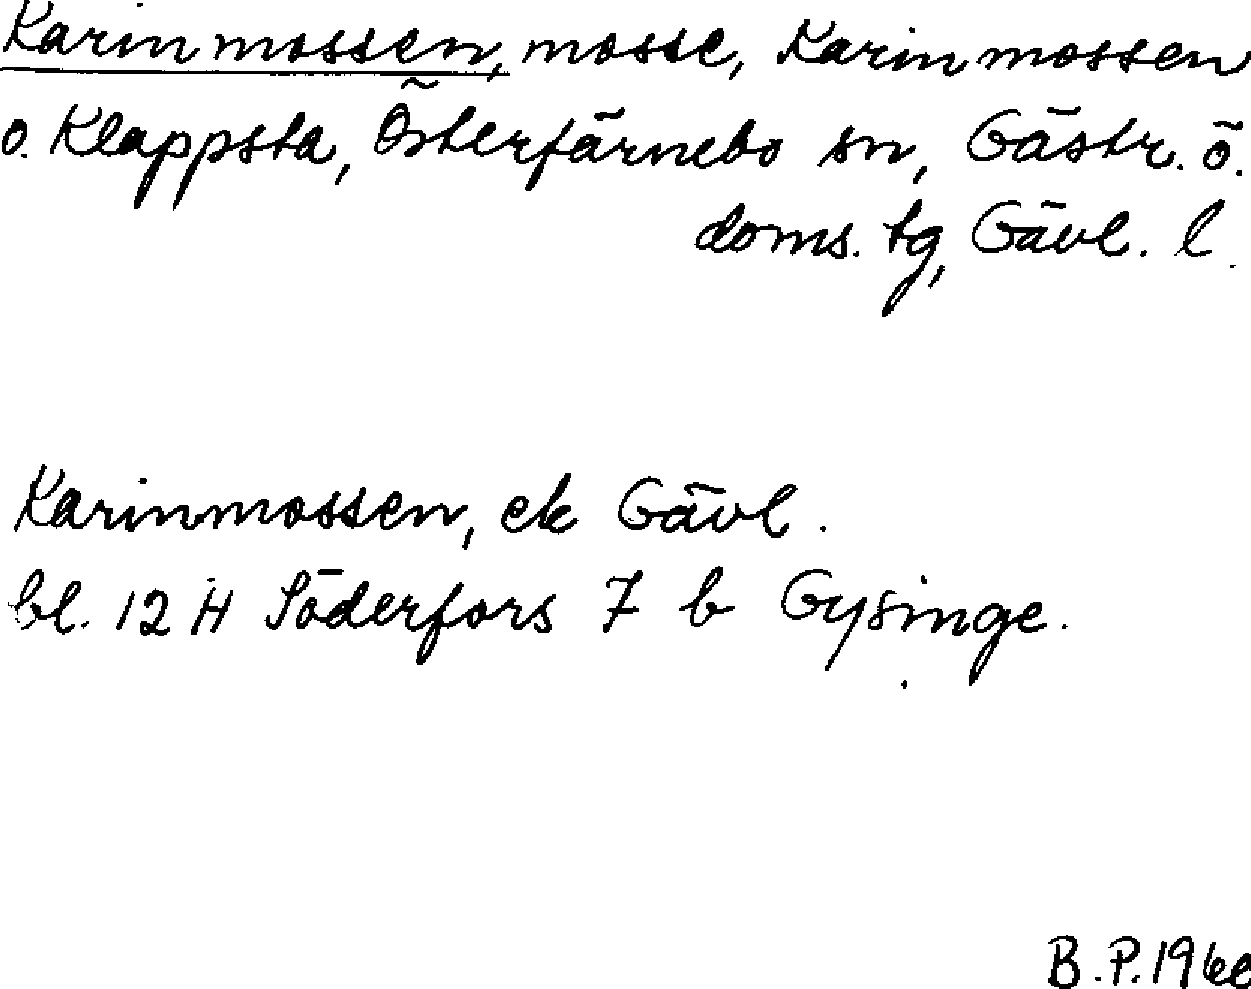 Karinmossen, mosse, Karinmossen
o. Klappsta, Österfärnebo sn, Gästr. ö.
doms. tg, Gävl. l.
Karinmossen, ek Gävl.
bl. 12 H Söderfors 7 b Gysinge.
B.P.